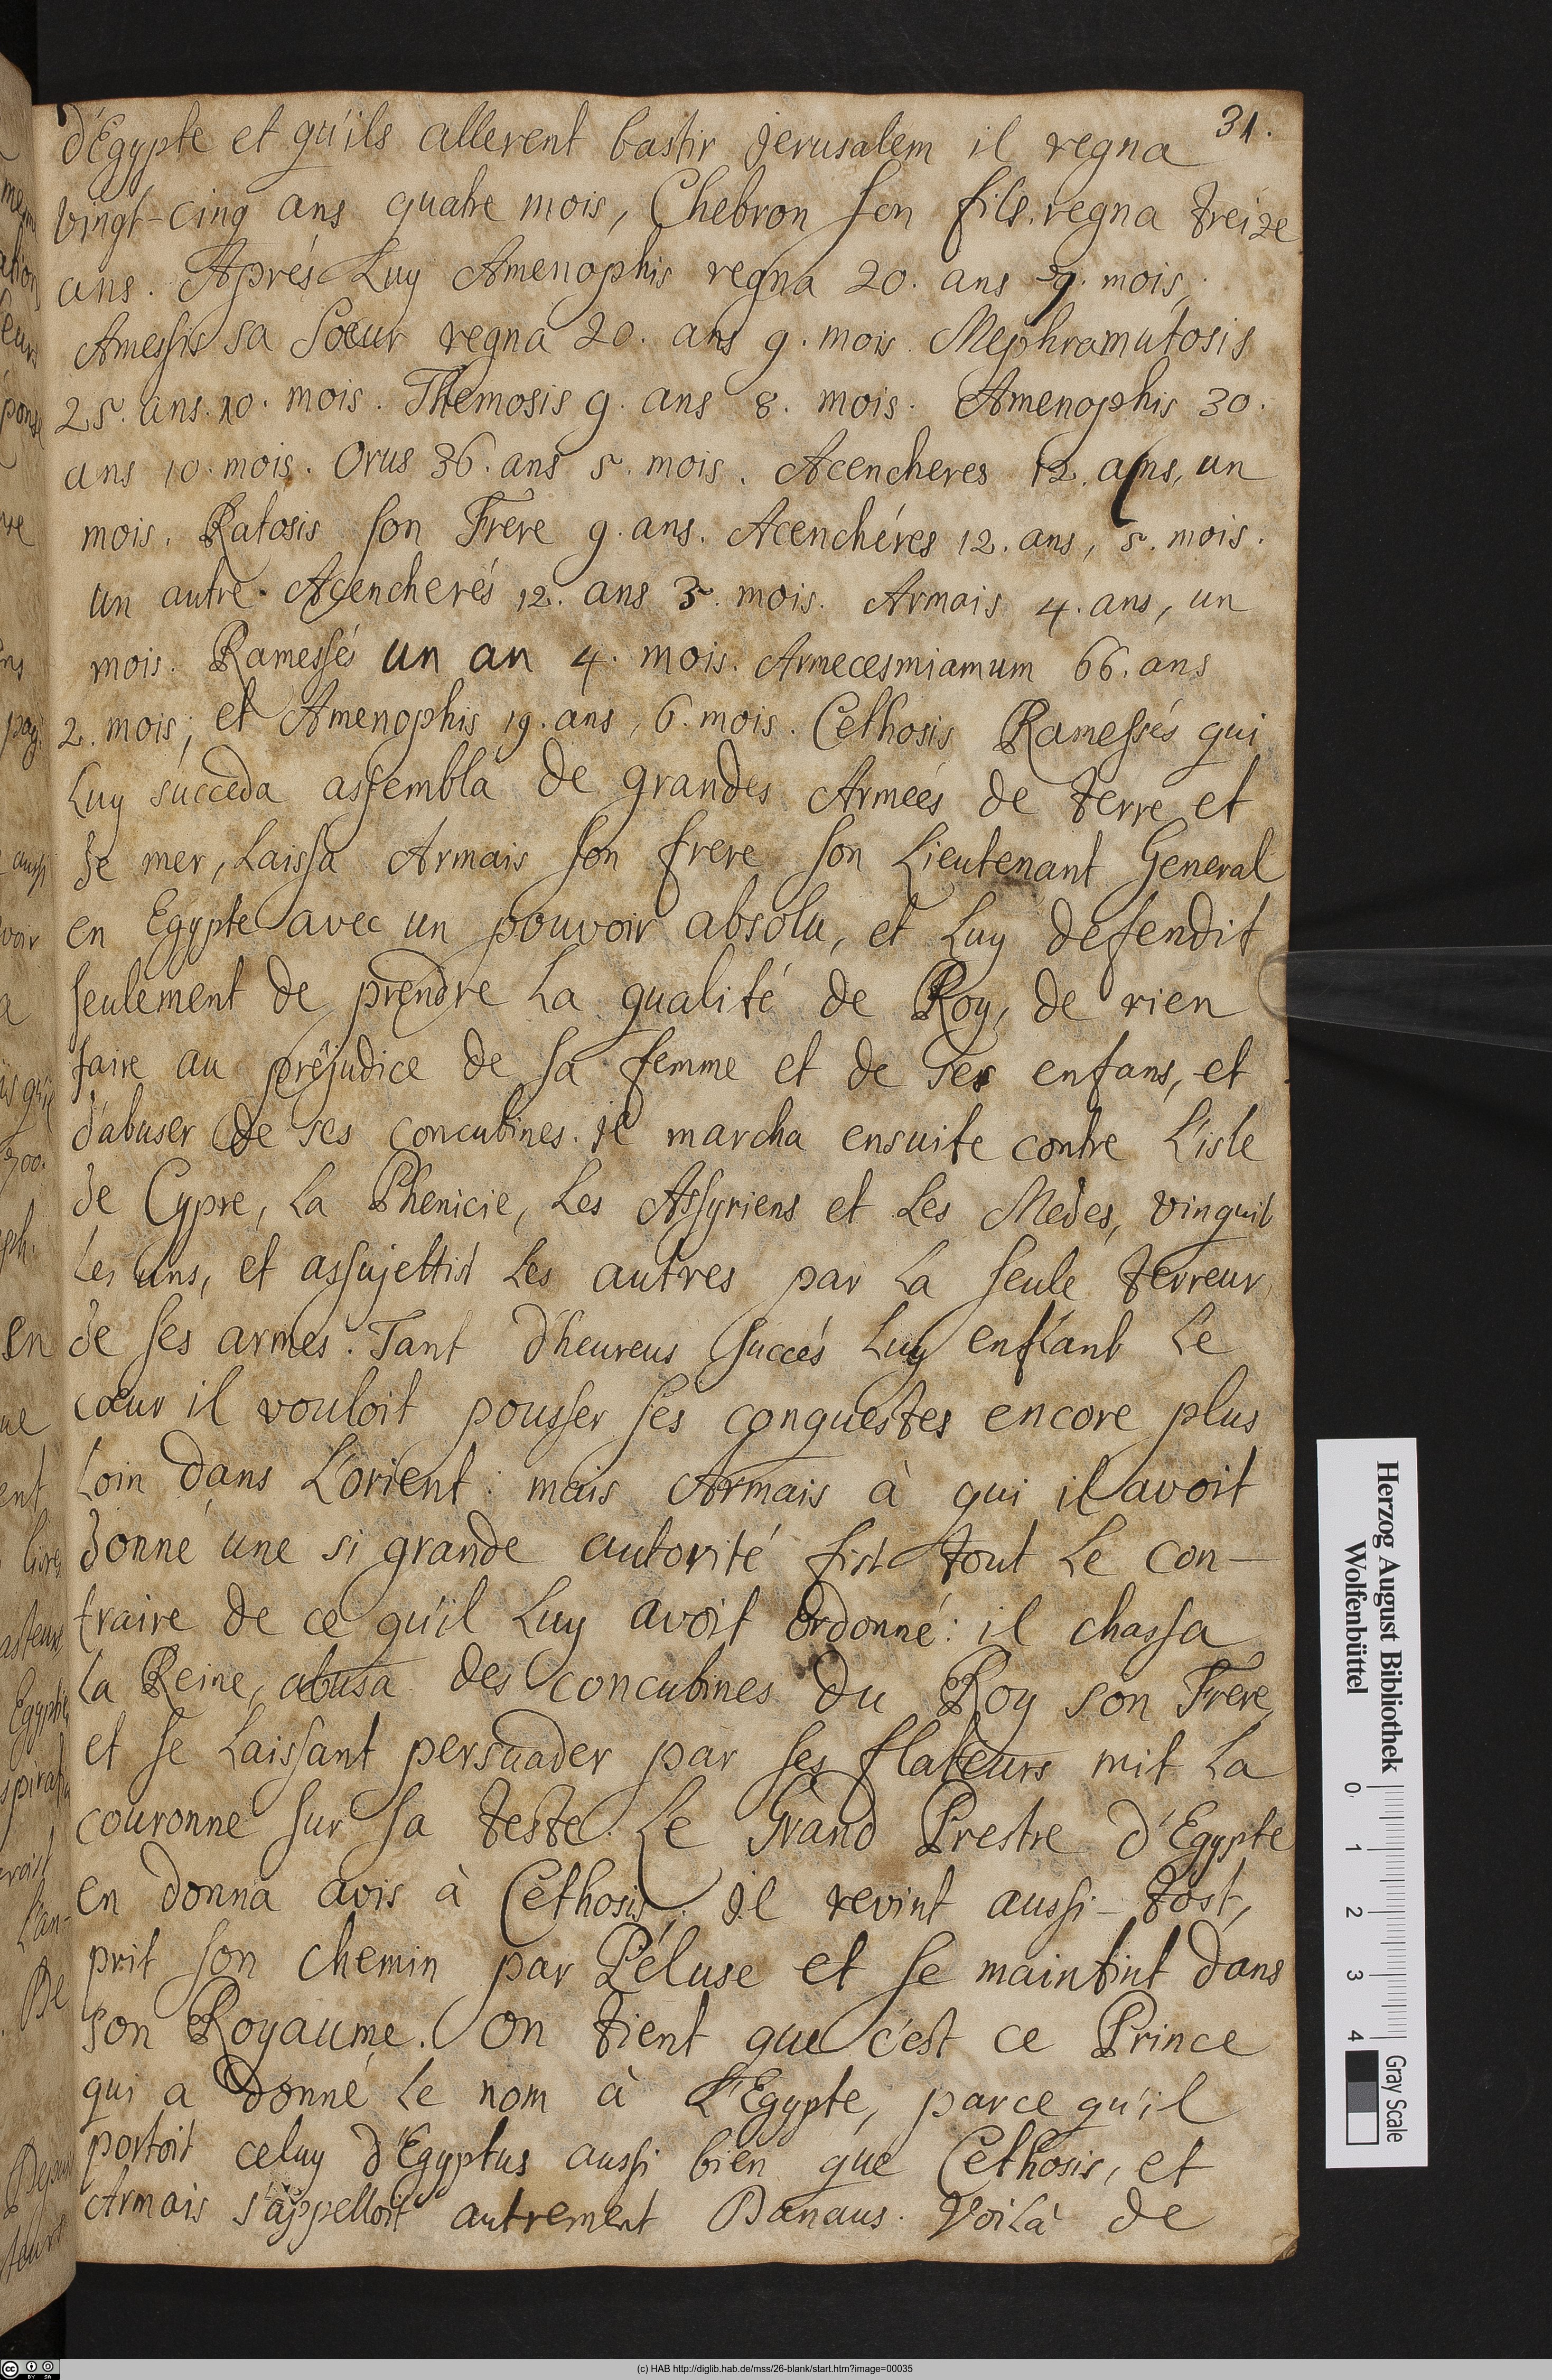 31.
d'Egypte et qu'ils allerent bastir Jerusalem il regna
vingt-cinq ans quatre mois, Chebron son fils. regna treize
ans. Aprés Luy Amenophis regna 20. ans 9. mois,
Amessis sa Soeur regna 20. ans 9. mois. Mephramutosis
25. ans. 10. mois. Themosis 9. ans 8. mois. Amenophis 30.
ans 10. mois. Orus 36. ans 5. mois. Acencheres 12. ans, un
mois. Ratosis son Frere 9. ans. Acenchéres 12. ans, 5. mois.
un autre Acencherés 12. ans 3. mois. Armais 4. ans, un
mois. Ramessés un an 4. mois. Armecesmiamum 66. ans
2. mois; et Amenophis 19. ans, 6. mois. Cethosis Ramessés qui
Luy succeda assembla de grandes Armées de terre et
de mer, Laissa Armais son frere son Lieutenant General
en Egypte avec un pouvoir absolu, et Luy defendit
seulement de prendre La qualité de Roy, de rien
faire au préjudice de sa femme et de ses enfans, et
d'abuser de ses concubines. il marcha ensuite contre L'isle
de Cypre, La Phenicie, Les Assyriens et Les Medes, vinquit
Les uns, et assujettist Les autres par La seule terreur
de ses armes. Tant d'heureus succés Luy enflant Le
coeur il vouloit pousser ses conquestes encore plus
Loin dans L'orient: mais Armais à qui il avoit
donné une si grande autorité fist tout Le con-
traire de ce qu'il Luy avoit ordonné: il chassa
La Reine, abusa des concubines du Roy son Frere,
et se Laissant persuader par ses flateurs mit La
couronne sur sa teste. Le Grand Prestre d'Egypte
en donna avis à Cethosis. il revint aussi-tost,
prit son chemin par Péluse et se maintint dans
son Royaume. On tient que c'est ce Prince
qui a donné Le nom à L'Egypte, parce qu'il
portoit celuy d'Egyptus aussi bien que Cethosis, et
Armais s'appelloit autrement Danaus. Voilà de
Herzog August Bibliothek
Wolfenbüttel
0 1 2 3 4
Gray Scale
(c) HAB http://diglib.hab.de/mss/26-blank/start.htm?image=00035